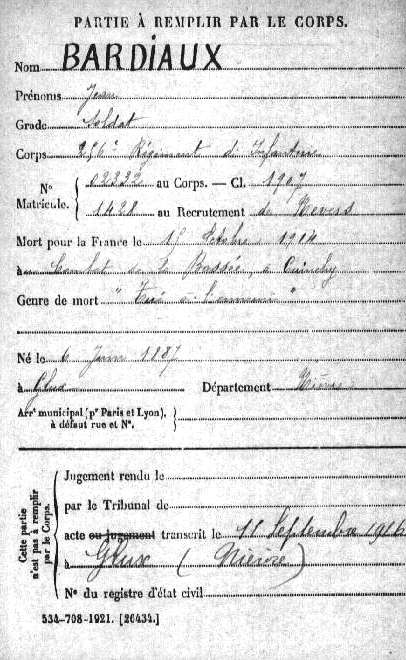 PARTIE À REMPLIR PAR LE CORPS.
Nom BARDIAUX
Prénoms Jean
Grade Soldat
Corps 256e Régiment d'Infanterie
N° Matricule. 02332 au Corps. — Cl. 1907
1428 au Recrutement de Nevers
Mort pour la France le 15 Octobre 1914
à Combat de La Bassée, à Cuinchy
Genre de mort "Tué à l'ennemi"
Né le 6 Juin 1887
à Glux Département Nièvre
Arrt municipal (pr Paris et Lyon), à défaut rue et N°.
Cette partie n'est pas à remplir par le Corps.
Jugement rendu le
par le Tribunal de
acte ou jugement transcrit le 11 Septembre 1916
à Glux (Nièvre)
N° du registre d'état civil
534-708-1921. [26434.]